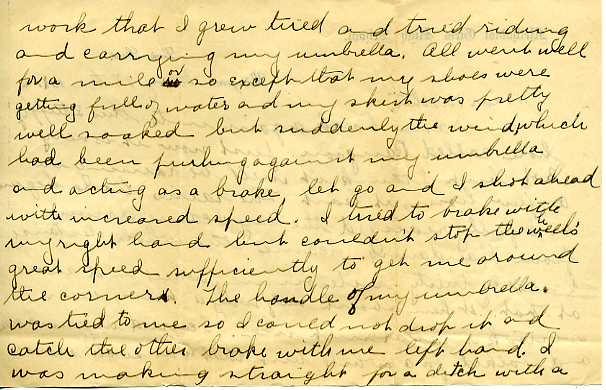 work that I grew tired and tried riding
and carrying my umbrella. All went well
for a mile or so except that my shoes were
getting full of water and my skirt was pretty
well soaked but suddenly the wind, which
had been pushing against my umbrella
and acting as a brake let go and I shot ahead
with increased speed. I tried to brake with
my right hand but couldn't stop the wheel's
great speed sufficiently to get me around
the corner. The handle of my umbrella
was tied to me so I could not drop it and
catch the other brake with me left hand. I
was making straight for a ditch with a